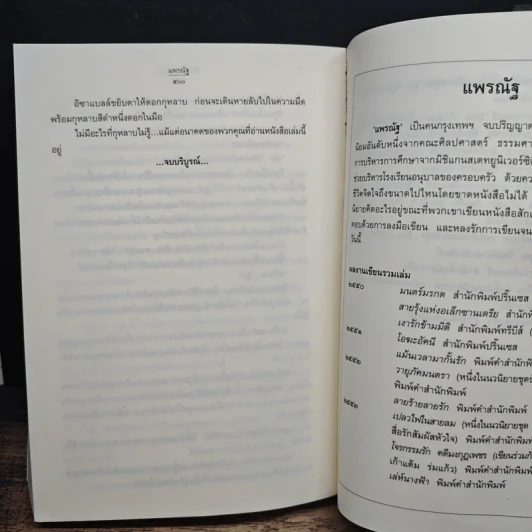 แพรณัฐ
๕๐๐
อิซาแบลล์ขยิบตาให้ดอกกุหลาบ ก่อนจะเดินหายลับไปในความมืด
พร้อมกุหลาบสีดำหนึ่งดอกในมือ
ไม่มีอะไรที่กุหลาบไม่รู้...แม้แต่อนาคตของพวกคุณที่อ่านหนังสือเล่มนี้
อยู่
...จบบริบูรณ์...
แพรณัฐ
'แพรณัฐ' เป็นคนกรุงเทพฯ จบปริญญาต
นิยมอันดับหนึ่งจากคณะศิลปศาสตร์ ธรรมศา
การบริหารการศึกษาจากมิชิแกนสเตทยูนิเวอร์ซิ
ช่วยบริหารโรงเรียนอนุบาลของครอบครัว ด้วยคว
ชีวิตจิตใจถึงขนาดไปไหนโดยขาดหนังสือไม่ได้
นิยายคิดอะไรอยู่ขณะที่พวกเขาเขียนหนังสือสักเ
ตอบด้วยการลงมือเขียน และหลงรักการเขียนจน
วันนี้
ผลงานเขียนรวมเล่ม
๒๕๕๐ มนตร์มรกต สำนักพิมพ์ปริ๊นเซส
สายรุ้งแห่งอเล็กซานเดรีย สำนักพิ
๒๕๕๑ เงารักข้ามมิติ สำนักพิมพ์ทรีบีส์ (
โอฆะอัคนี สำนักพิมพ์ปริ๊นเซส
๒๕๕๒ แม้นเวลามากั้นรัก พิมพ์คำสำนักพิ
วายุภัคมนตรา (หนึ่งในนวนิยายชุด
พิมพ์คำสำนักพิมพ์
๒๕๕๓ ลายร้ายลายรัก พิมพ์คำสำนักพิมพ์
เปลวไฟในสายลม (หนึ่งในนวนิยายชุด
สื่อรักสัมผัสหัวใจ) พิมพ์คำสำนักพิมพ์
โจรกรรมรัก คดีมงกุฎเพชร (เขียนร่วมกั
เก้าแต้ม ร่มแก้ว) พิมพ์คำสำนักพิมพ์
เล่ห์นางฟ้า พิมพ์คำสำนักพิมพ์